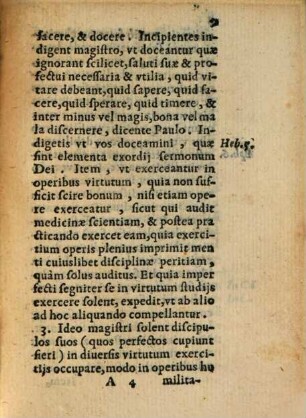 facere, & docere. Incipientes in-
digent magistro, vt doceantur quæ
ignorant scilicet, saluti suæ & pro-
fectui necessaria & vtilia, quid vi-
tare debeant, quid sapere, quid fa-
cere, quid sperare, quid timere, &
inter minus vel magis, bona vel ma
la discernere, dicente Paulo. In-
digetis vt vos doceamini, quæ
Heb. 5.
sint elementa exordij sermonum
Dei. Item, vt exerceantur in
operibus virtutum, quia non suf-
ficit scire bonum, nisi etiam ope
re exerceatur, sicut qui audit
medicinæ scientiam, & postea pra
cticando exercet eam, quia exerci-
tium operis plenius imprimit men
ti cuiuslibet disciplinæ peritiam,
quàm solus auditus. Et quia imper
fecti segniter se in virtutum studijs
exercere solent, expedit, vt ab alio
ad hoc aliquando compellantur.
3. Ideo magistri solent discipu-
los suos (quos perfectos cupiunt
fieri) in diuersis virtutum exerci-
tijs occupare, modo in operibus hu
A 4 milita-